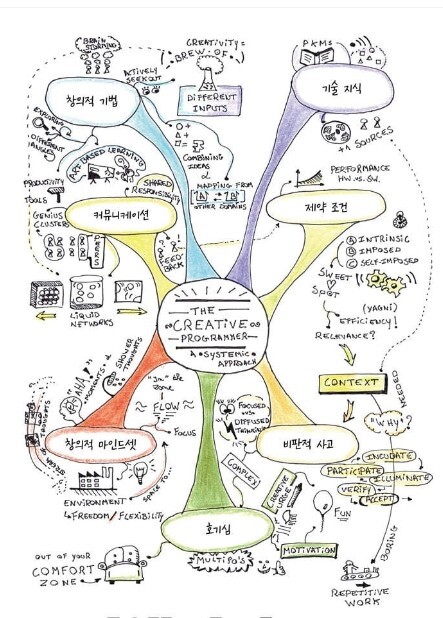 BRAIN
STORMING
CREATIVITY =
BREW OF
DIFFERENT
INPUTS
PKMS
창의적 기법
ACTIVELY
SEEK OUT
기술 지식
# SOURCES
EXPLORING
DIFFERENT
ANGLES
COMBINING
IDEAS
&
MAPPING FROM
[A] ⇄ [B]
OTHER DOMAINS
ART BASED LEARNING
PERFORMANCE
HW. vs. SW.
PRODUCTIVITY
TOOLS
SHARED
RESPONSIBILITY
커뮤니케이션
제약 조건
GENIUS
CLUSTERS
FEED-
BACK
A INTRINSIC
B IMPOSED
C SELF-IMPOSED
SWEET
SPOT
LIQUID
NETWORKS
(YAGNI)
EFFICIENCY!
RELEVANCE?
THE
CREATIVE
PROGRAMMER
A SYSTEMIC
APPROACH
CONTEXT
NEEDED
"AHA!"
MOMENTS &
SHOWER
THOUGHTS
"IN" THE
ZONE
FLOW
FOCUS
FOCUSED
VS
DIFFUSED
THINKING
"WHY?"
창의적 마인드셋
비판적 사고
INCUBATE
PARTICIPATE
ILLUMINATE
VERIFY
ACCEPT
COMPLEX
ENVIRONMENT
↳ FREEDOM / FLEXIBILITY
SPACE TO...
CREATIVE
URGE
FUN
호기심
MULTIPO'S
MOTIVATION
BORING
OUT OF YOUR
COMFORT
ZONE
→ REPETITIVE
WORK